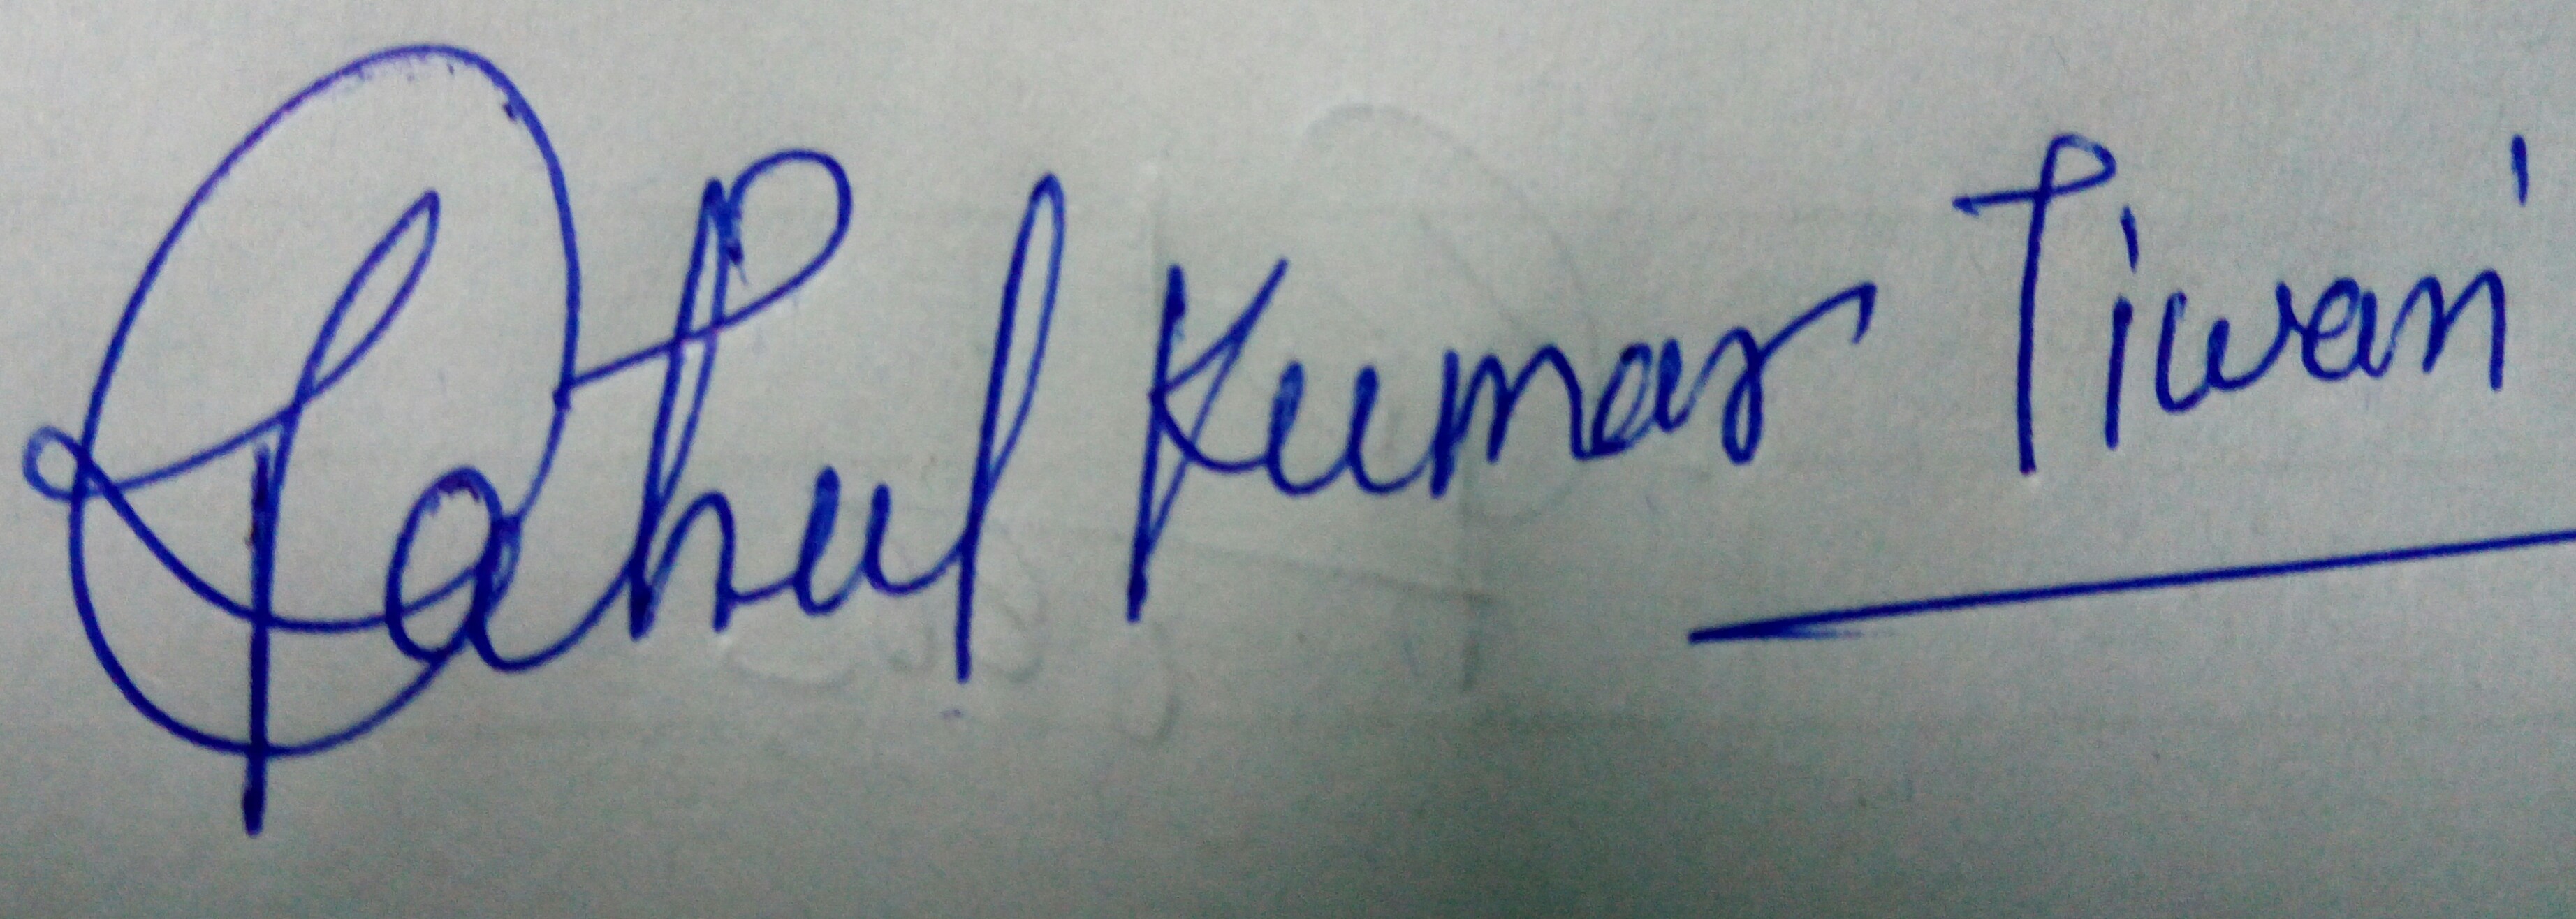 Rahul Kumar Tiwari